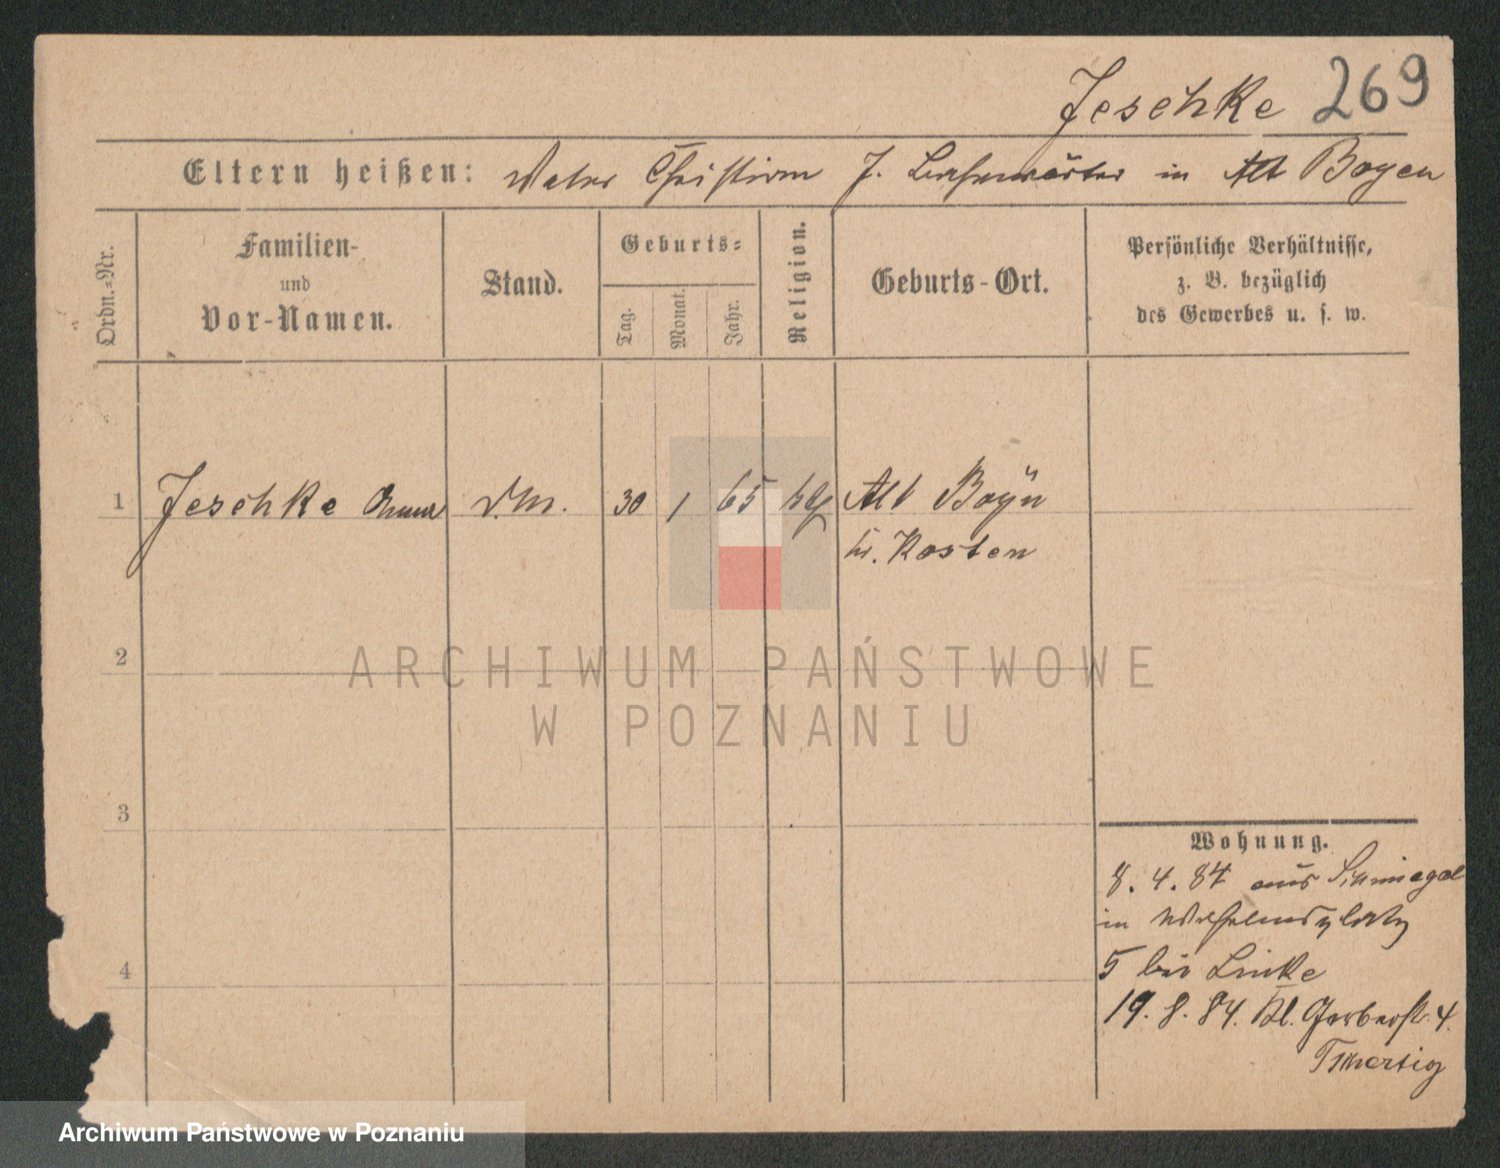 Jeschke 269
Eltern heißen: Vater Christian J. Bahnwärter in Alt Boyen
Ordn.-Nr.
Familien-
und
Vor-Namen.
Stand.
Geburts-
Tag. Monat. Jahr.
Religion.
Geburts-Ort.
Persönliche Verhältnisse,
z. B. bezüglich
des Gewerbes u. s. w.
1 Jeschke Anna d.M. 30 1 65 Alt Boyn
Kr. Kosten
2
3
4
Wohnung.
8. 4. 84 aus Schmiegel
in Wilhelmsplatz
5 bei Linke
19. 8. 84. Kl. Gerberstr. 4.
ARCHIWUM PAŃSTWOWE
W POZNANIU
Archiwum Państwowe w Poznaniu